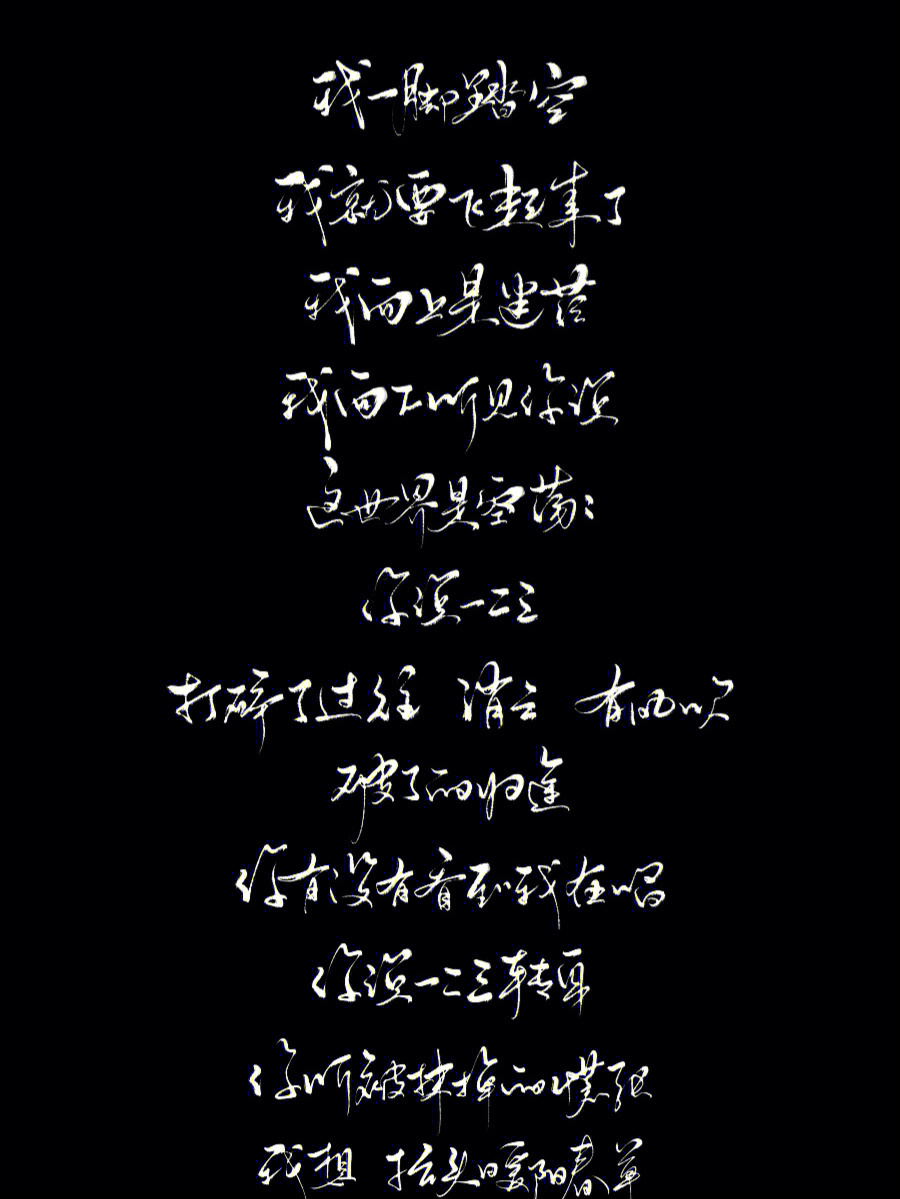 我一脚踏空
我就要飞起来了
我向上是迷茫
我向下听见你说
这世界是空荡荡
你说一二三
打碎了过往 消亡 有风吹
破了的归途
你有没有看到我在唱
你说一二三转身
你听被抹掉的慌张
我想 抬头暖阳春草